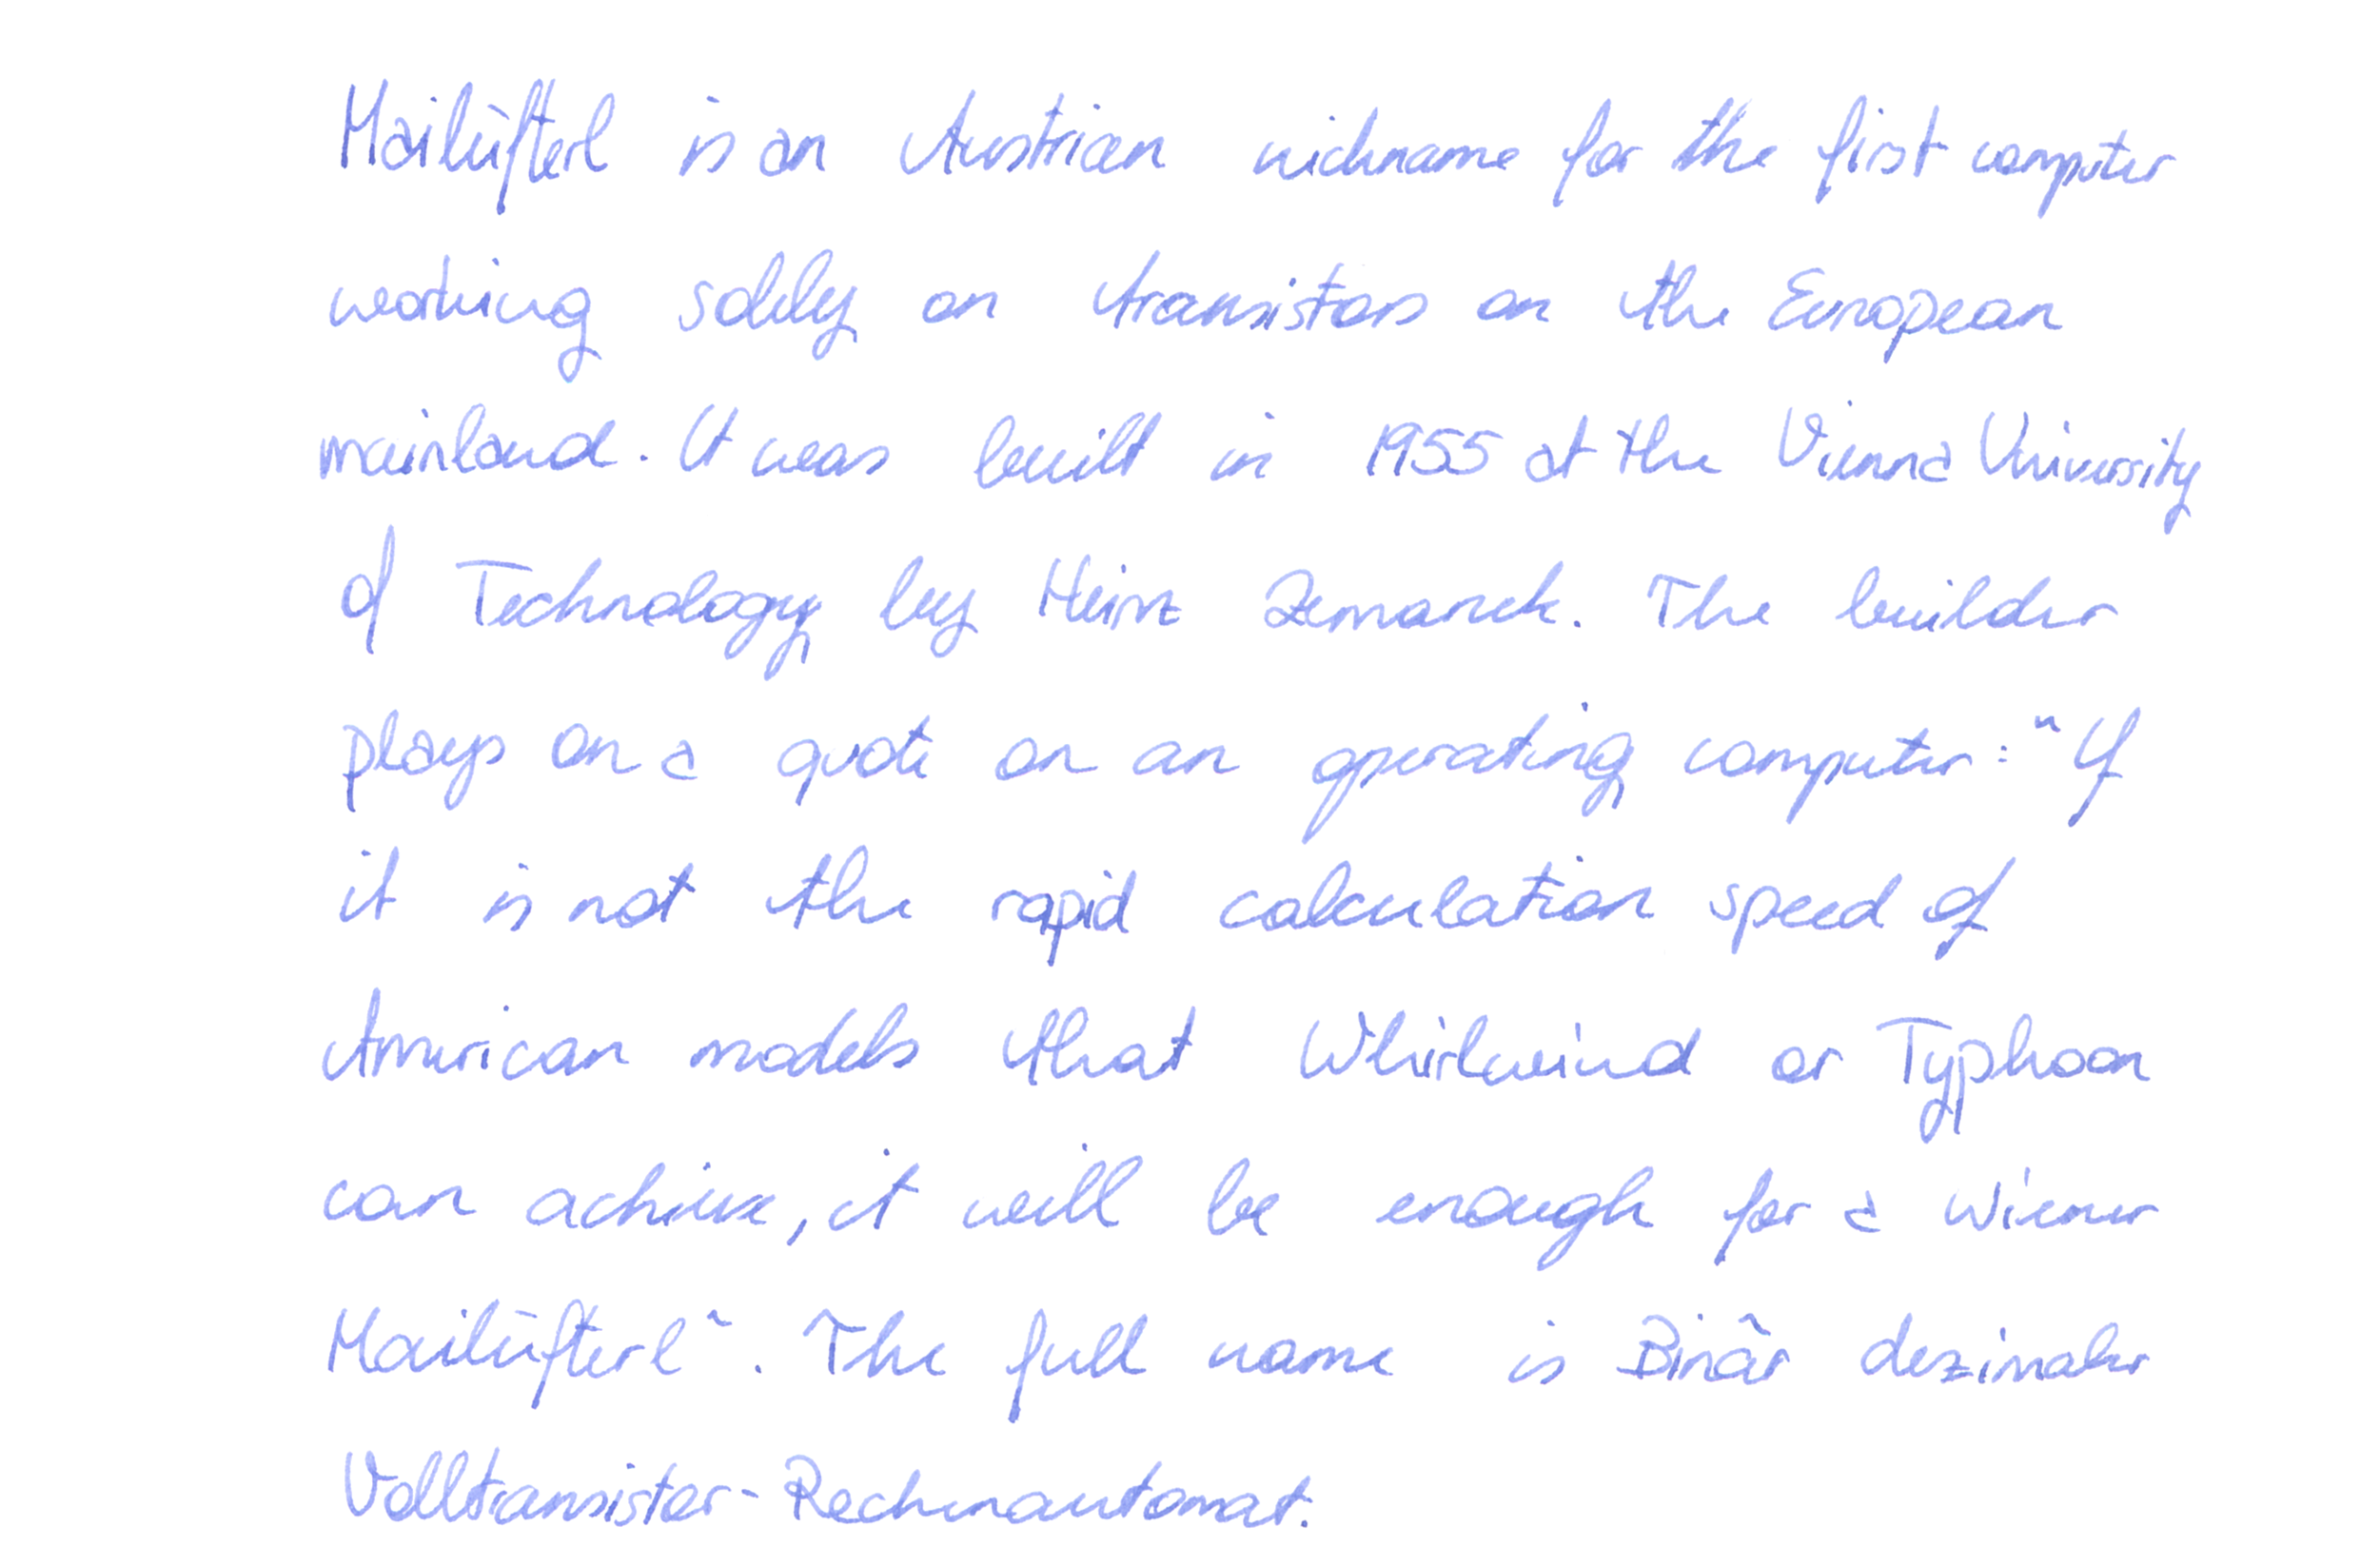 Mailüfterl is an Austrian nickname for the first computer
working solely on transistors on the European
mainland. It was built in 1955 at the Vienna University
of Technology by Heinz Zemanek. The builder
plays on a quote on an operating computer: "If
it is not the rapid calculation speed of
American models that Whirlwind or Typhoon
can achieve, it will be enough for a Wiener
Mailüfterl". The full name is Binär dezimaler
Volltransistor-Rechenautomat.